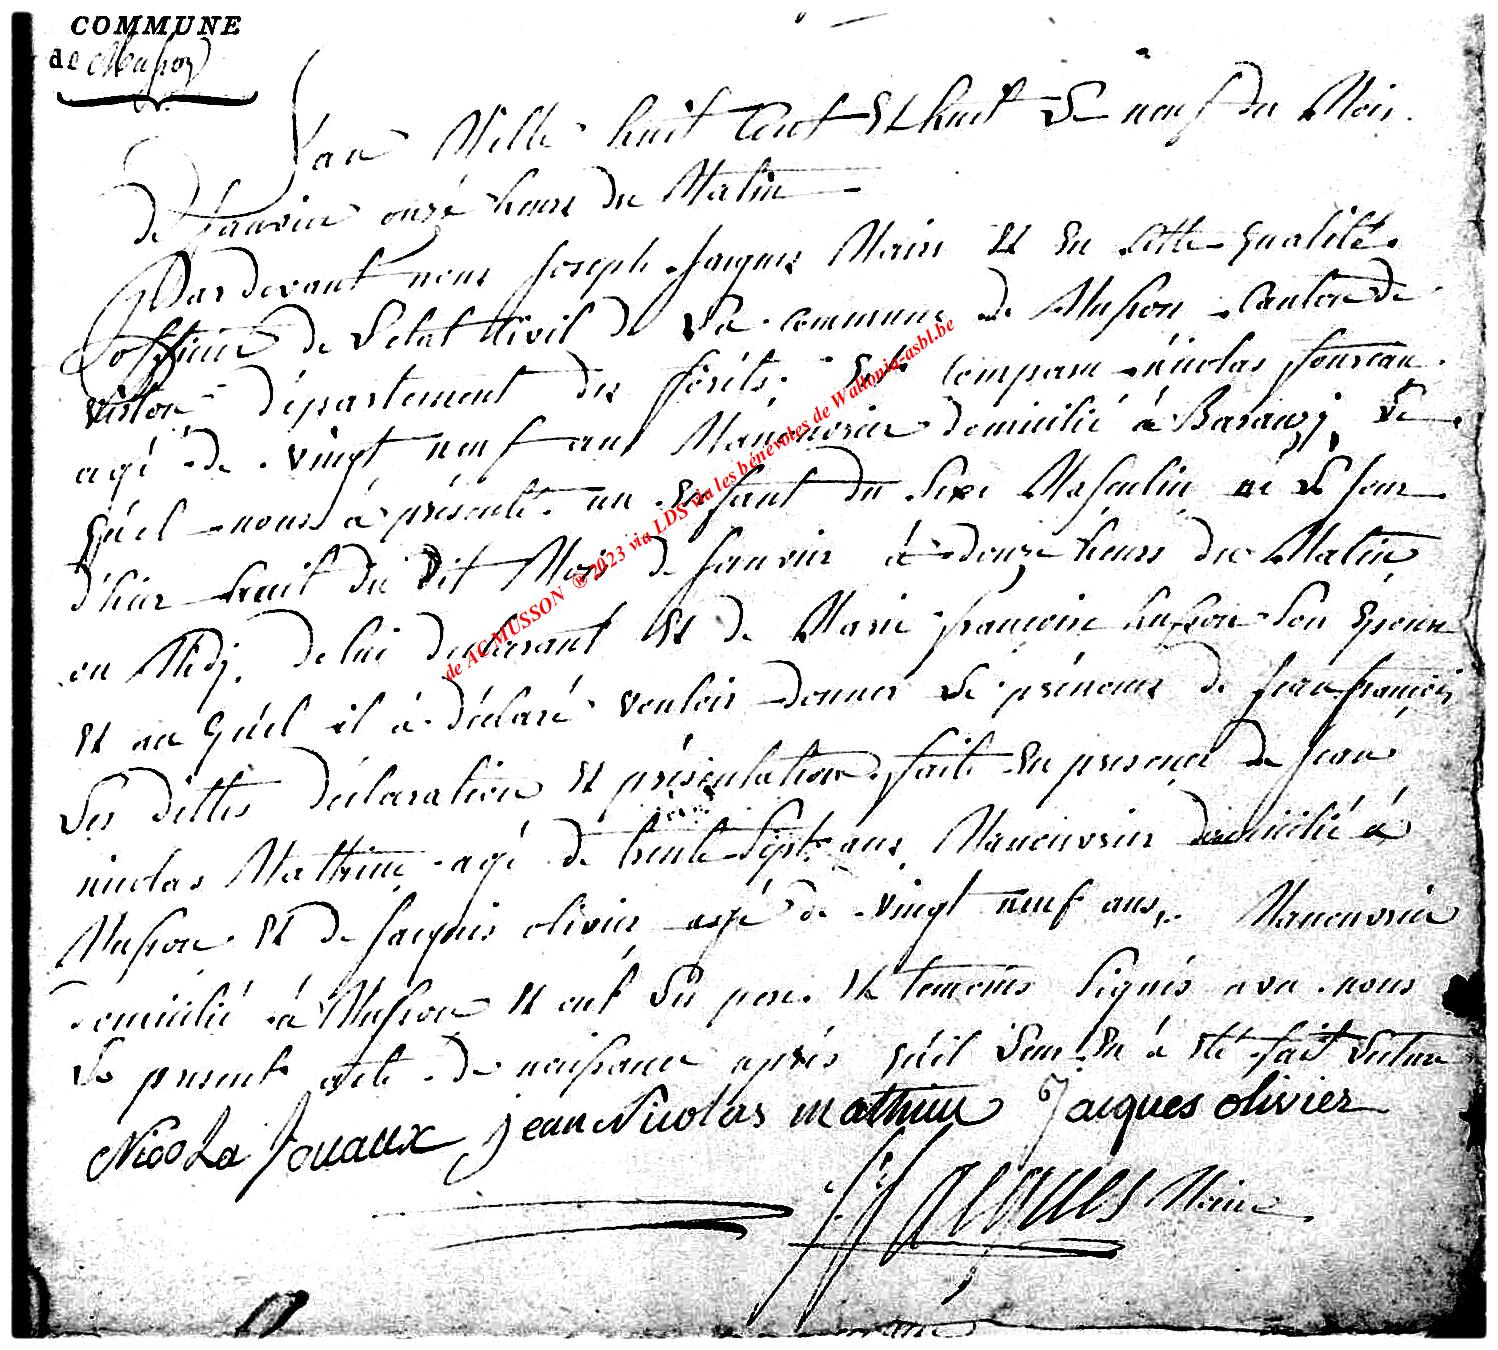 COMMUNE
de Musson
L'an Mille huit Cent et huit Le neuf du Mois
de janvier onze heure du Matin
Pardevant nous joseph jacques Maire et en cette qualité
officier de L'etat Civil de La commune de Musson Canton de
virton département des forêts, est comparu nicolas
agé de vingt neuf ans Manouvrier domicilié à Baranzy, Le
quel nous à présenté un enfant du sexe Masculin né Le jour
d'hier huit du dit Mois de janvier à douze heure du Matin
ou Midy. de lui declarant et de Marie françoise husson son epouse
et au quel il à déclaré vouloir donner Le prénoms de jean françois
Les dittes déclaration et présentation faite en presence de jean
nicolas Mathieu agé de trente Sept ans Manouvrier domicilié à
Musson et de jacques olivier agé de vingt neuf ans, Manouvrier
domicilié à Musson et ont Les pere et temoins signés avec nous
Le present acte de naissance après qu'il Leur En à eté fait Lecture
Nicola jean Nicolas mathieu Jacques olivier
J Jacques Maire
de AC MUSSON ®2023 via LDS via les bénévoles de Wallonia-asbl.be